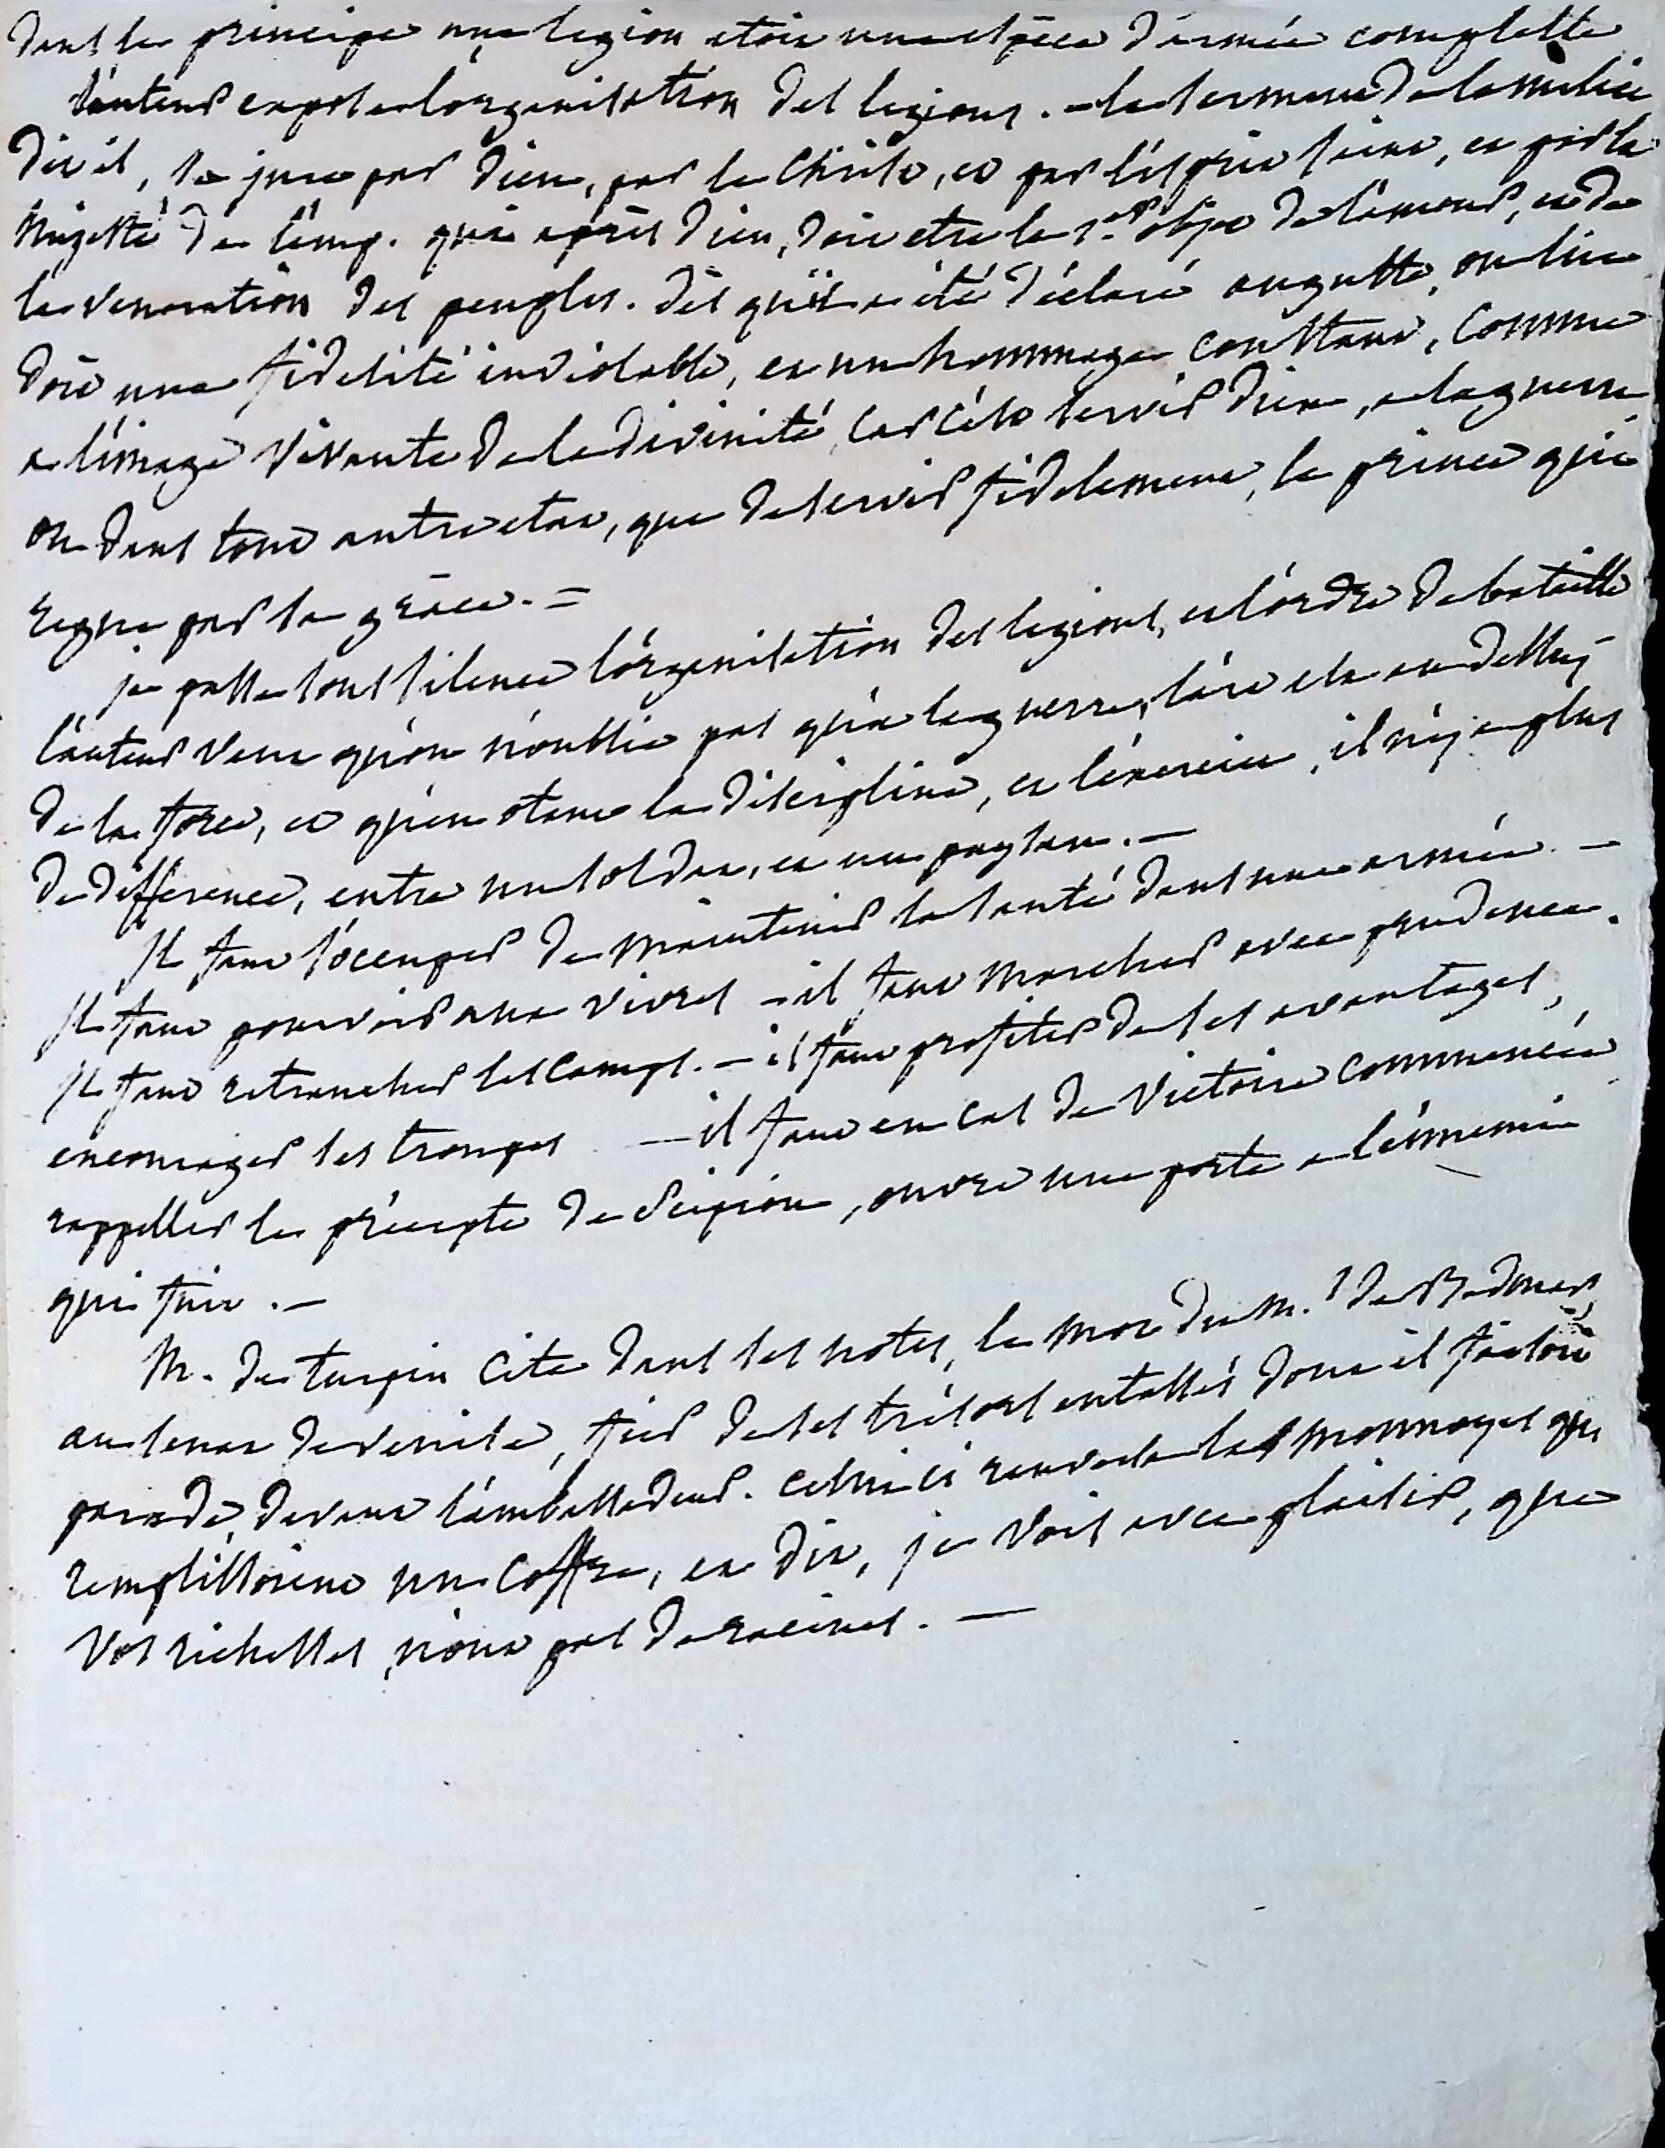 dans le principe une legion etoit une espèce d'armée complette
l'auteur expose l'organisation des legions. – le serment de la milice
dit il, se jure par dieu, par le Christ, et par l'esprit saint, et par la
Majesté de l'emp. qui après dieu, doit etre le 1.er objet de l'amour, et de
la veneration des peuples. dès qu'il a été déclaré auguste, on lui
doit une fidelité inviolable, et un hommage constant, comme
a l'image vivante de la divinité, car c'est servir dieu, a la guerre
ou dans tout autre etat, que de servir fidelement, le prince qui
regne par sa grâce. =
je passe sous silence l'organisation des legions, et l'ordre de bataille
l'auteur veut qu'on n'oublie pas qu'a la guerre, l'art est au dessus
de la force, et qu'en otant la discipline, et l'exercice, il n'y a plus
de différence, entre un soldat, et un paysan. –
Il faut s'occuper de maintenir la santé dans une armée. –
Il faut pourvoir aux vivres – il faut marcher avec prudence.
Il faut retrancher les camps. – il faut profiter de ses avantages,
encourager ses troupes – il faut en cas de victoire commencée
rappeller le précepte de Scipion, ouvre une porte a l'ennemi
qui fuit. –
M. de turpin cite dans ses notes, le mot du M.s de Bedmar
au senat de venise, fier de ses trésors entassés dont il faisoit
parade, devant l'ambassadeur. celui ci renversa les monnayes qui
remplissoient un coffre, et dit, je vois avec plaisir, que
vos richesses, n'ont pas de racines. —